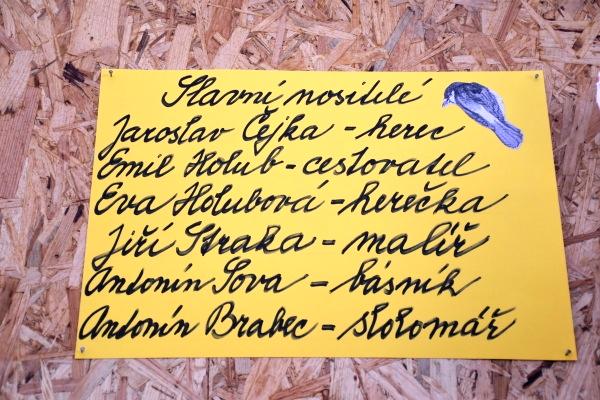 Slavní nositelé
Jaroslav Čejka - herec
Emil Holub - cestovatel
Eva Holubová - herečka
Jiří Straka - malíř
Antonín Sova - básník
Antonín Brabec - sokomář